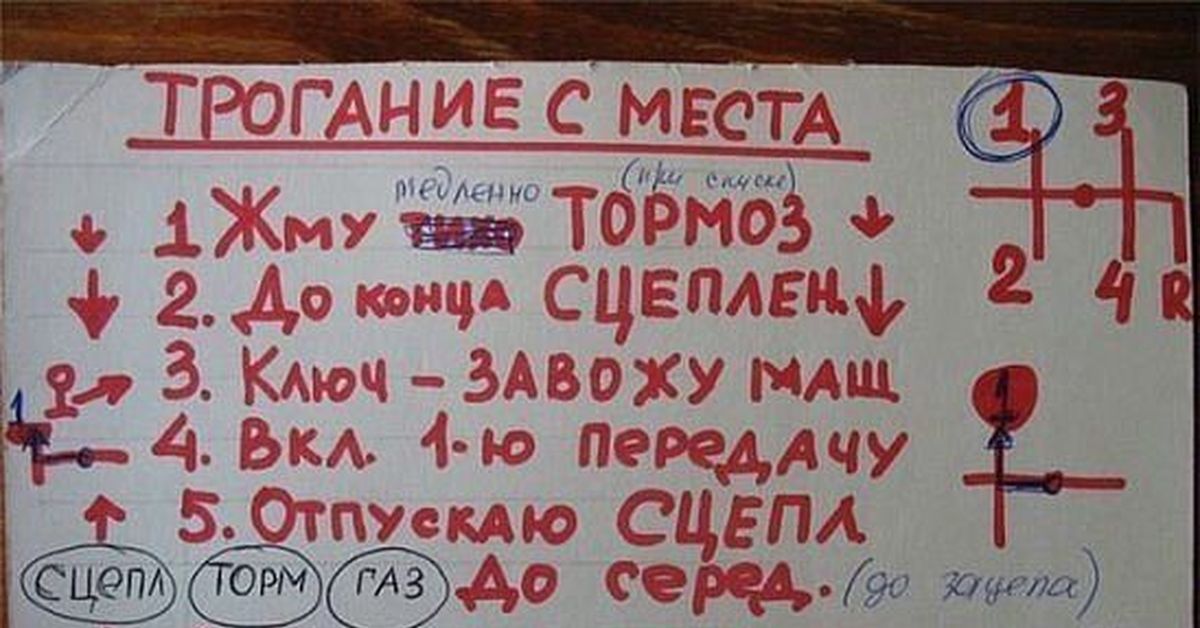 ТРОГАНИЕ С МЕСТА
1 3
медленно (при спуске)
1 Жму ТОРМОЗ
2 4 R
2. До конца СЦЕПЛЕН.
3. Ключ - ЗАВОЖУ МАШ
1
1
4. Вкл. 1-ю передачу
5. Отпускаю СЦЕПЛ
СЦЕПЛ ТОРМ ГАЗ До серед. (до зацепа)